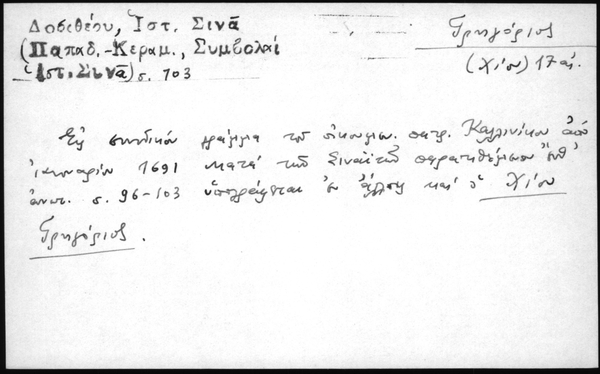 Δοσιθέου, Ἱστ. Σινᾶ
(Παπαδ.-Κεραμ., Συμβολαί
Ἱστ. Σινᾶ) σ. 103
Γρηγόριος
(Χίου) 17 αἰ.
Εἰς συνοδικόν γράμμα τοῦ οἰκουμεν. πατρ. Καλλινίκου ἀπό
ἰανουαρίου 1691 κατά τῶν Σιναϊτῶν παρατιθέμενον
ἀνωτ. σ. 96-103 ὑπογράφεται ἐν ἄλλοις καί ὁ Χίου
Γρηγόριος.